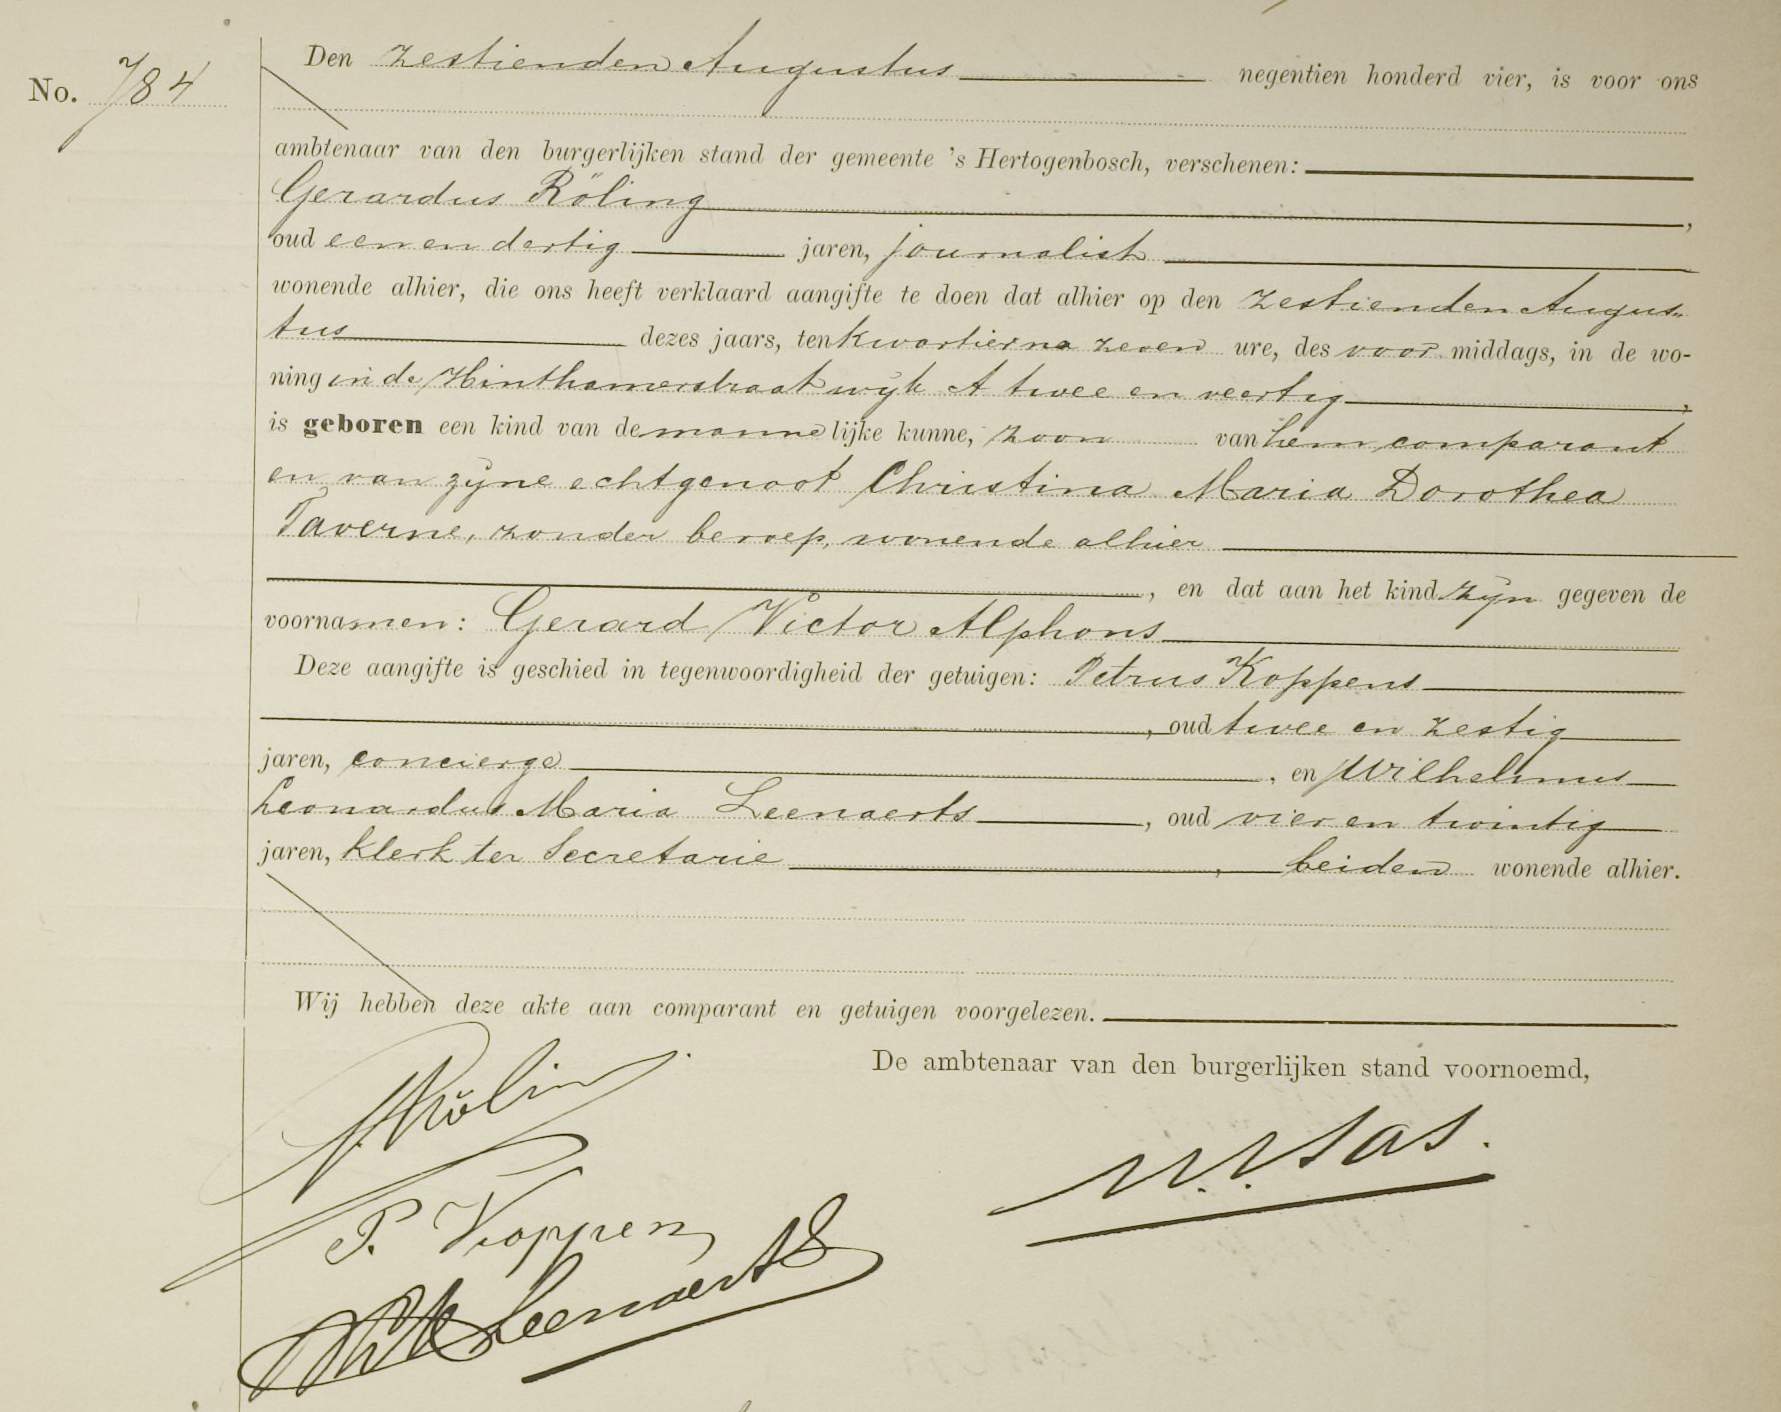 No. 784
Den zestienden Augustus negentien honderd vier, is voor ons
ambtenaar van den burgerlijken stand der gemeente 's Hertogenbosch, verschenen:
Gerardus Röling,
oud een en dertig jaren, journalist
wonende alhier, die ons heeft verklaard aangifte te doen dat alhier op den zestienden Augus-
tus dezes jaars, ten kwartier na zeven ure, des voor middags, in de wo-
ning in de Hinthamerstraat wijk A twee en veertig,
is geboren een kind van de mannelijke kunne, zoon van hem comparant
en van zijne echtgenoot Christina Maria Dorothea
Taverne, zonder beroep, wonende alhier
, en dat aan het kind zijn gegeven de
voornamen: Gerard Victor Alphons
Deze aangifte is geschied in tegenwoordigheid der getuigen: Petrus Koppens
, oud twee en zestig
jaren, concierge, en Wilhelmus
Leonardus Maria Leenaerts, oud vier en twintig
jaren, klerk ter Secretarie, beiden wonende alhier.
Wij hebben deze akte aan comparant en getuigen voorgelezen.
De ambtenaar van den burgerlijken stand voornoemd,
Röling
P. Koppens
Leenaerts